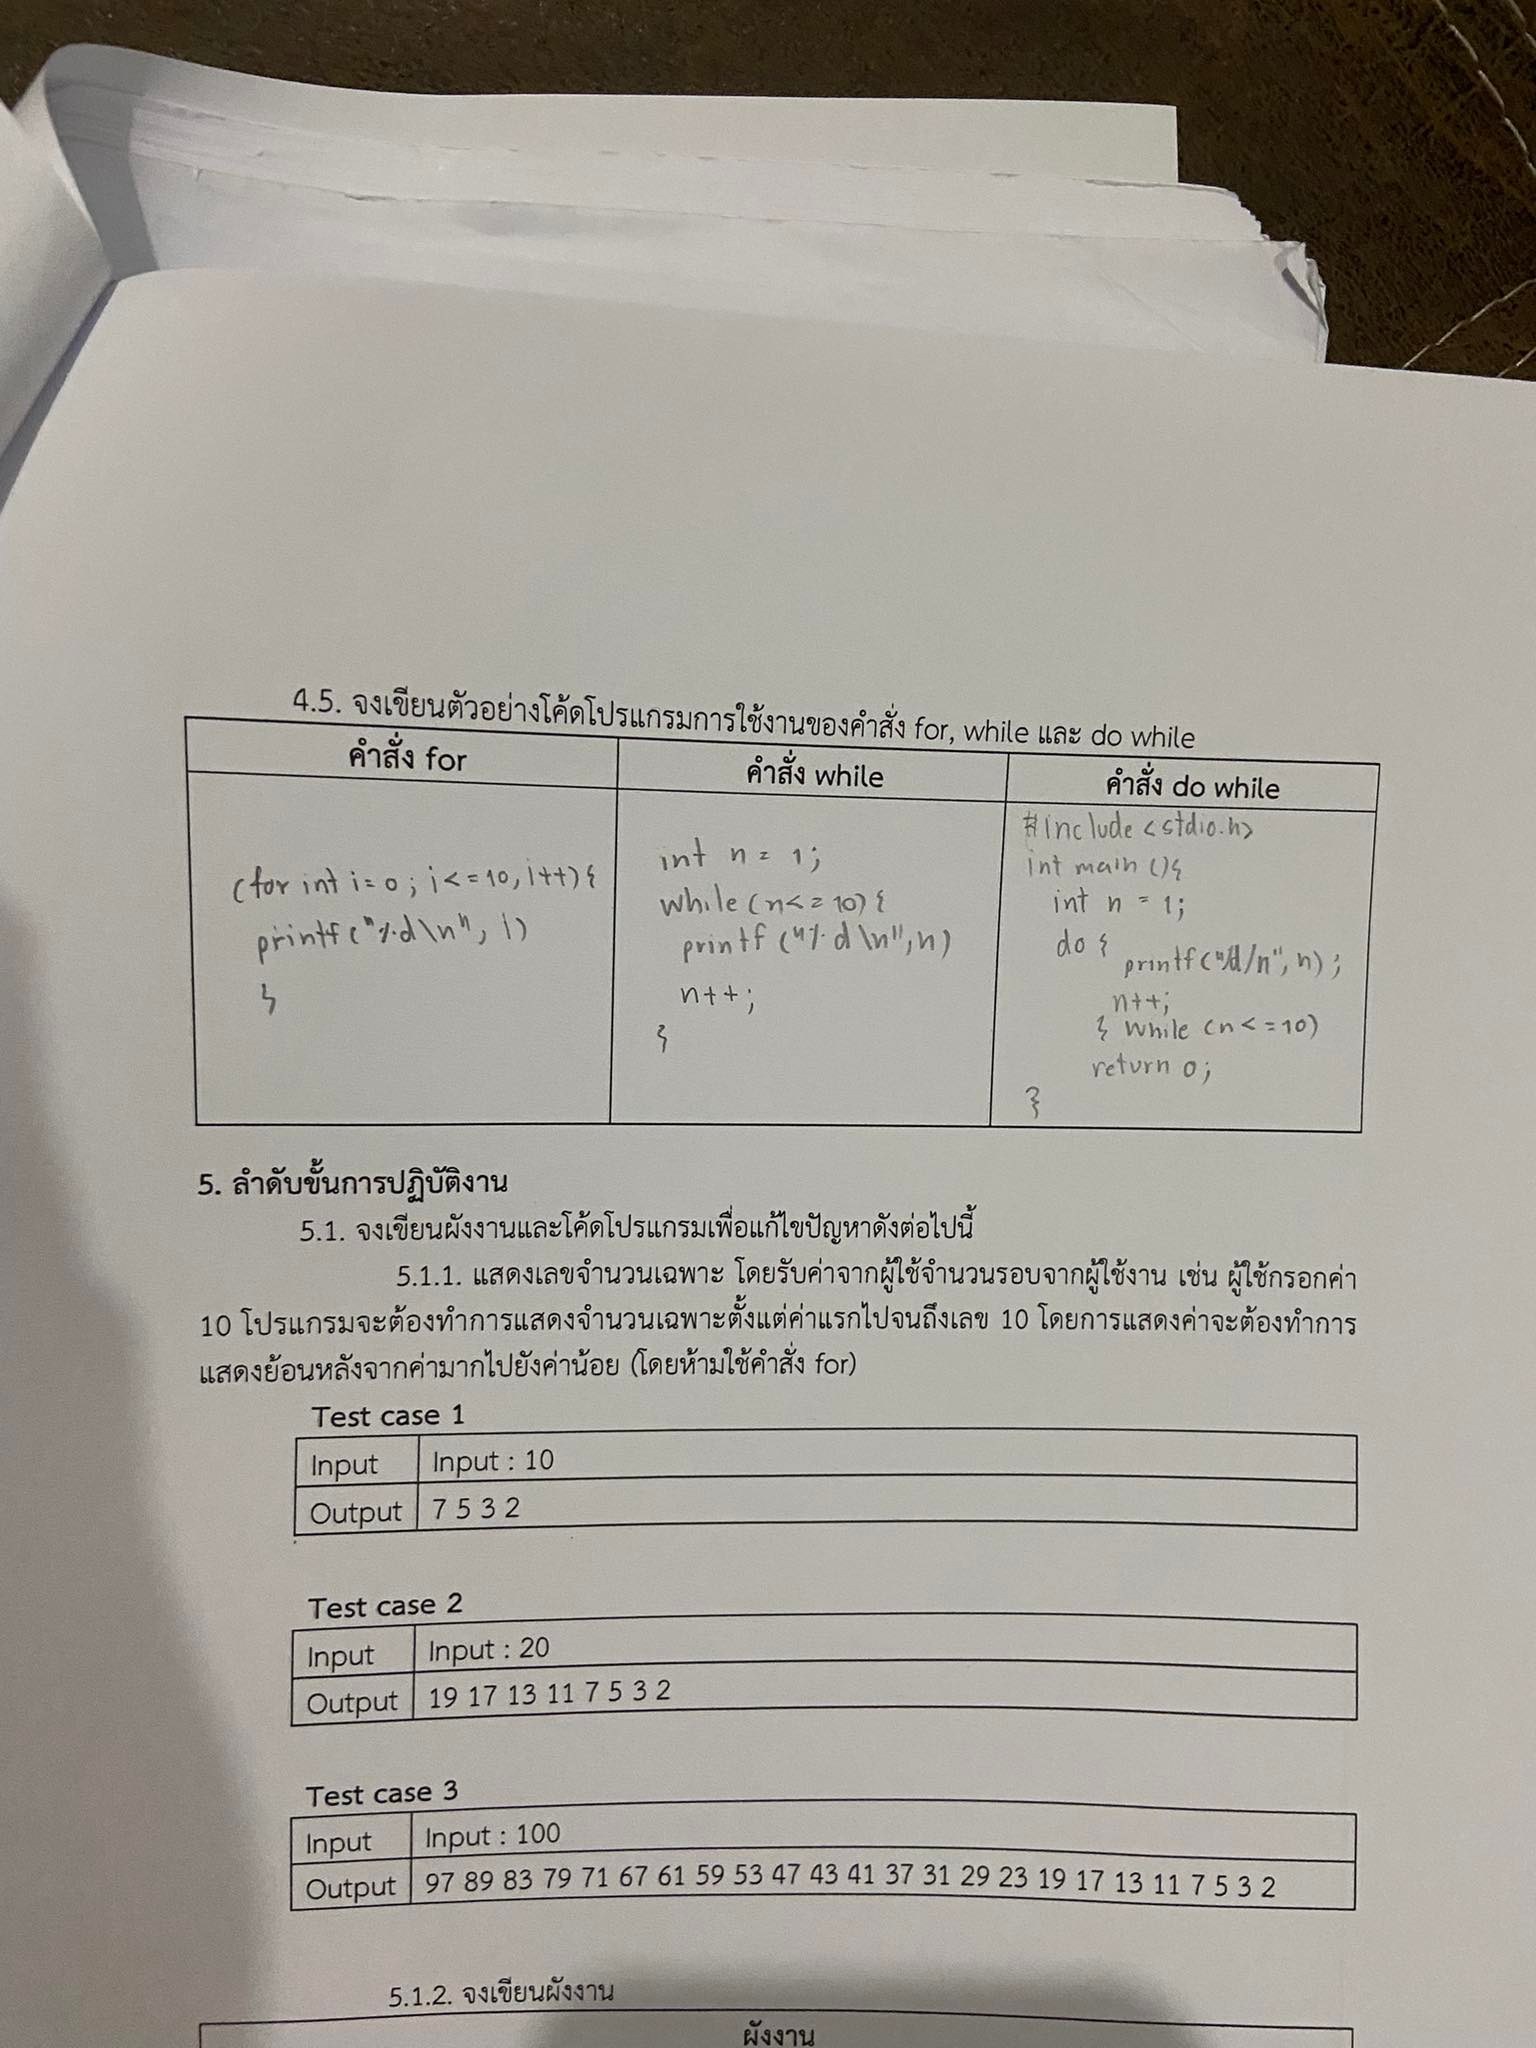 4.5. จงเขียนตัวอย่างโค้ดโปรแกรมการใช้งานของคำสั่ง for, while และ do while
คำสั่ง for
(for int i=0; i<=10, i++){
printf("%d\n", i)
}
คำสั่ง while
int n = 1;
while (n<=10){
printf("%d\n",n)
n++;
}
คำสั่ง do while
#include <stdio.h>
int main (){
int n = 1;
do {
printf("%d/n", n);
n++;
} while (n<=10)
return 0;
}
5. ลำดับขั้นการปฏิบัติงาน
5.1. จงเขียนผังงานและโค้ดโปรแกรมเพื่อแก้ไขปัญหาดังต่อไปนี้
5.1.1. แสดงเลขจำนวนเฉพาะ โดยรับค่าจากผู้ใช้จำนวนรอบจากผู้ใช้งาน เช่น ผู้ใช้กรอกค่า
10 โปรแกรมจะต้องทำการแสดงจำนวนเฉพาะตั้งแต่ค่าแรกไปจนถึงเลข 10 โดยการแสดงค่าจะต้องทำการ
แสดงย้อนหลังจากค่ามากไปยังค่าน้อย (โดยห้ามใช้คำสั่ง for)
Test case 1
Input Input : 10
Output 7 5 3 2
Test case 2
Input Input : 20
Output 19 17 13 11 7 5 3 2
Test case 3
Input Input : 100
Output 97 89 83 79 71 67 61 59 53 47 43 41 37 31 29 23 19 17 13 11 7 5 3 2
5.1.2. จงเขียนผังงาน
ผังงาน